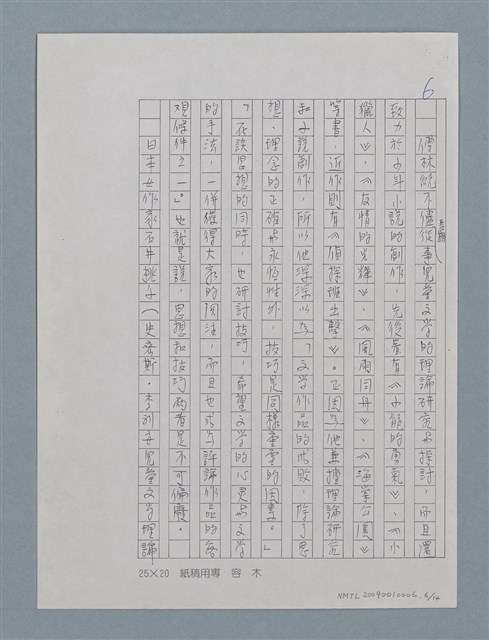 6
長期
傅林統不僅從事兒童文學的理論研究與探討，而且還
致力於少年小說的創作，先後著有《小熊的勇氣》、《小
獵人》、《友情的光輝》、《風雨同舟》、《海棠公園》
等書，近作則有《偵探班出擊》。正因為他兼擅理論研究
和小說創作，所以他深深以為「文學作品的成敗，除了思
想、理念的正確與永恆性外，技巧是同樣重要的因素。」
「在談思想的同時，也研討技巧，希望文學的心靈與文學
的手法，一併獲得大家的關注，而且也成為評論作品的客
觀條件之一。」也就是說，思想和技巧兩者是不可偏廢。
日本女作家石井桃子（史密斯・李利安兒童文學理論
25×20 紙稿用專 容 木
NMTL 20090010006. 6/14